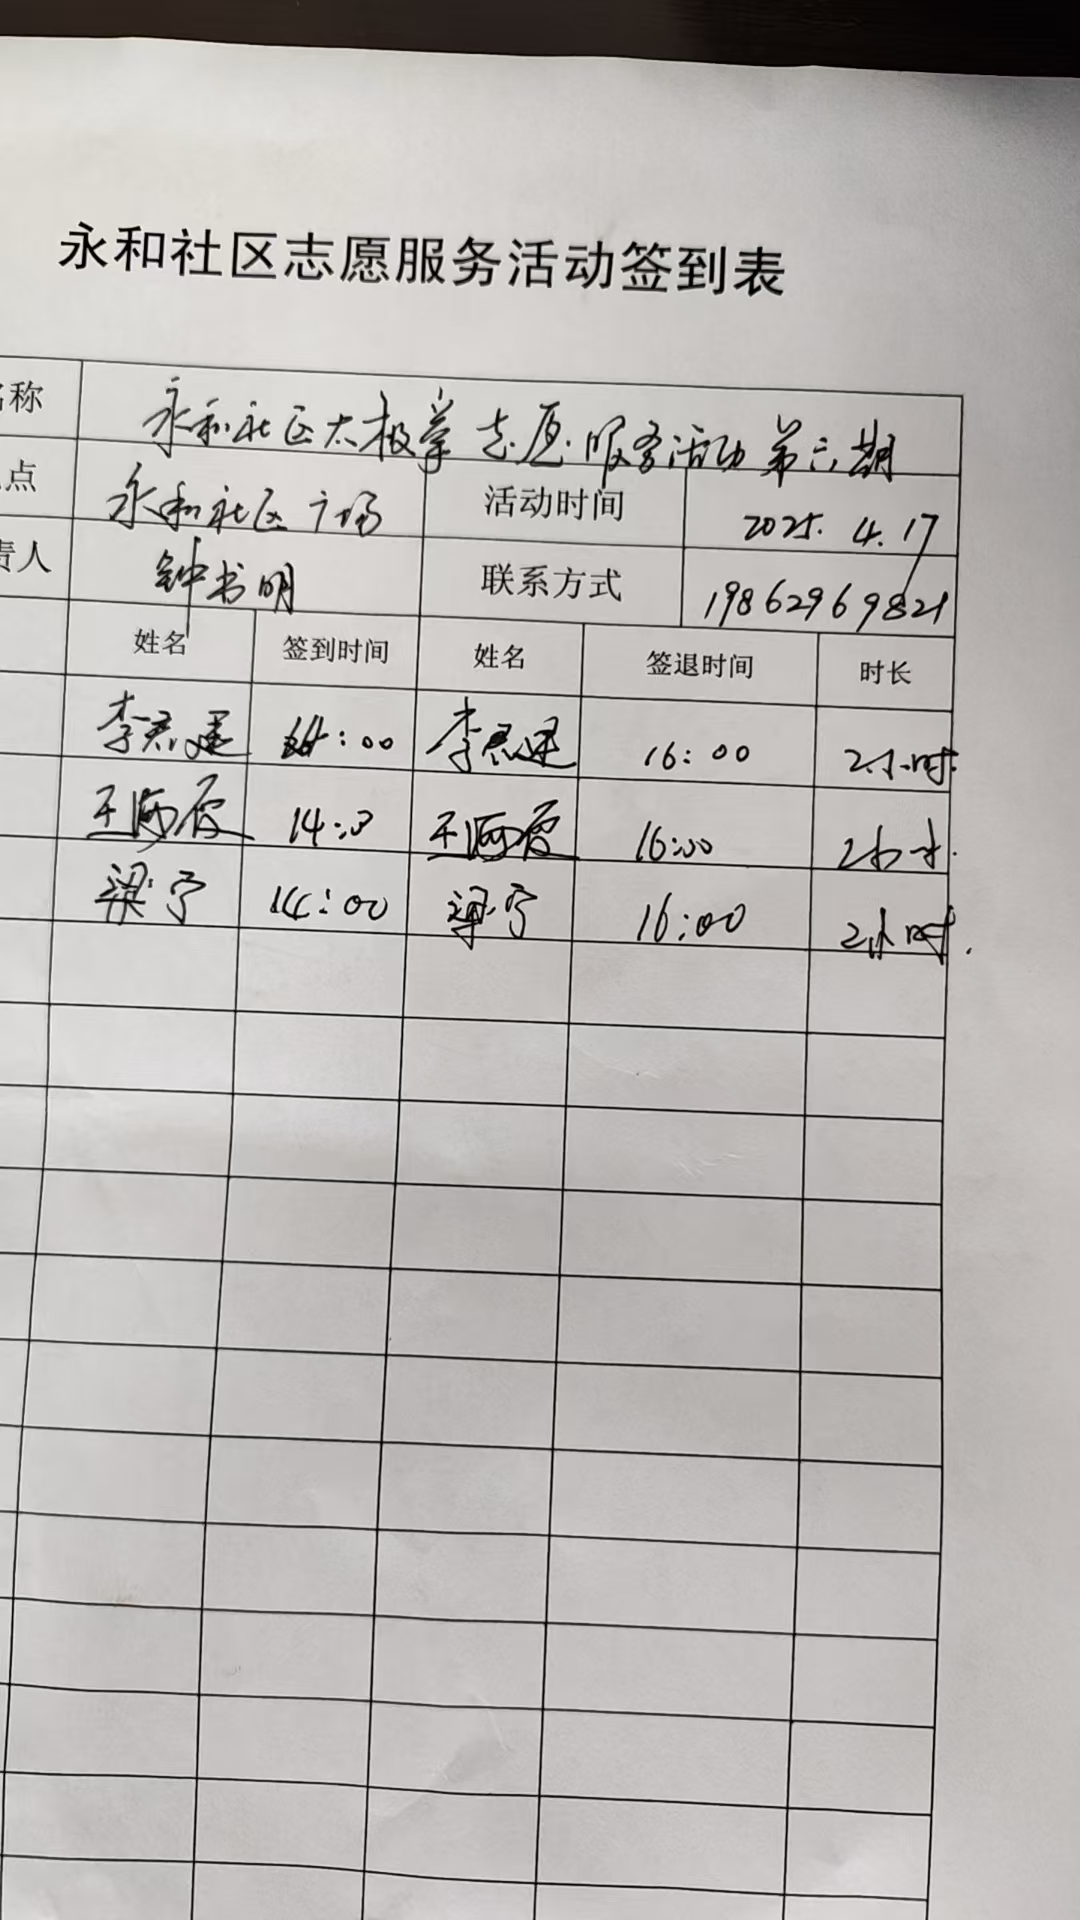 永和社区志愿服务活动签到表
名称 永和社区太极拳志愿服务活动第六期
点 永和社区广场 活动时间 2025.4.17
责人 钟书明 联系方式 19862969821
姓名 签到时间 姓名 签退时间 时长
李 :00 李 16:00 2小时
王海霞 14: 王海霞 16:00 2小
梁宁 14:00 梁宁 16:00 2小时.